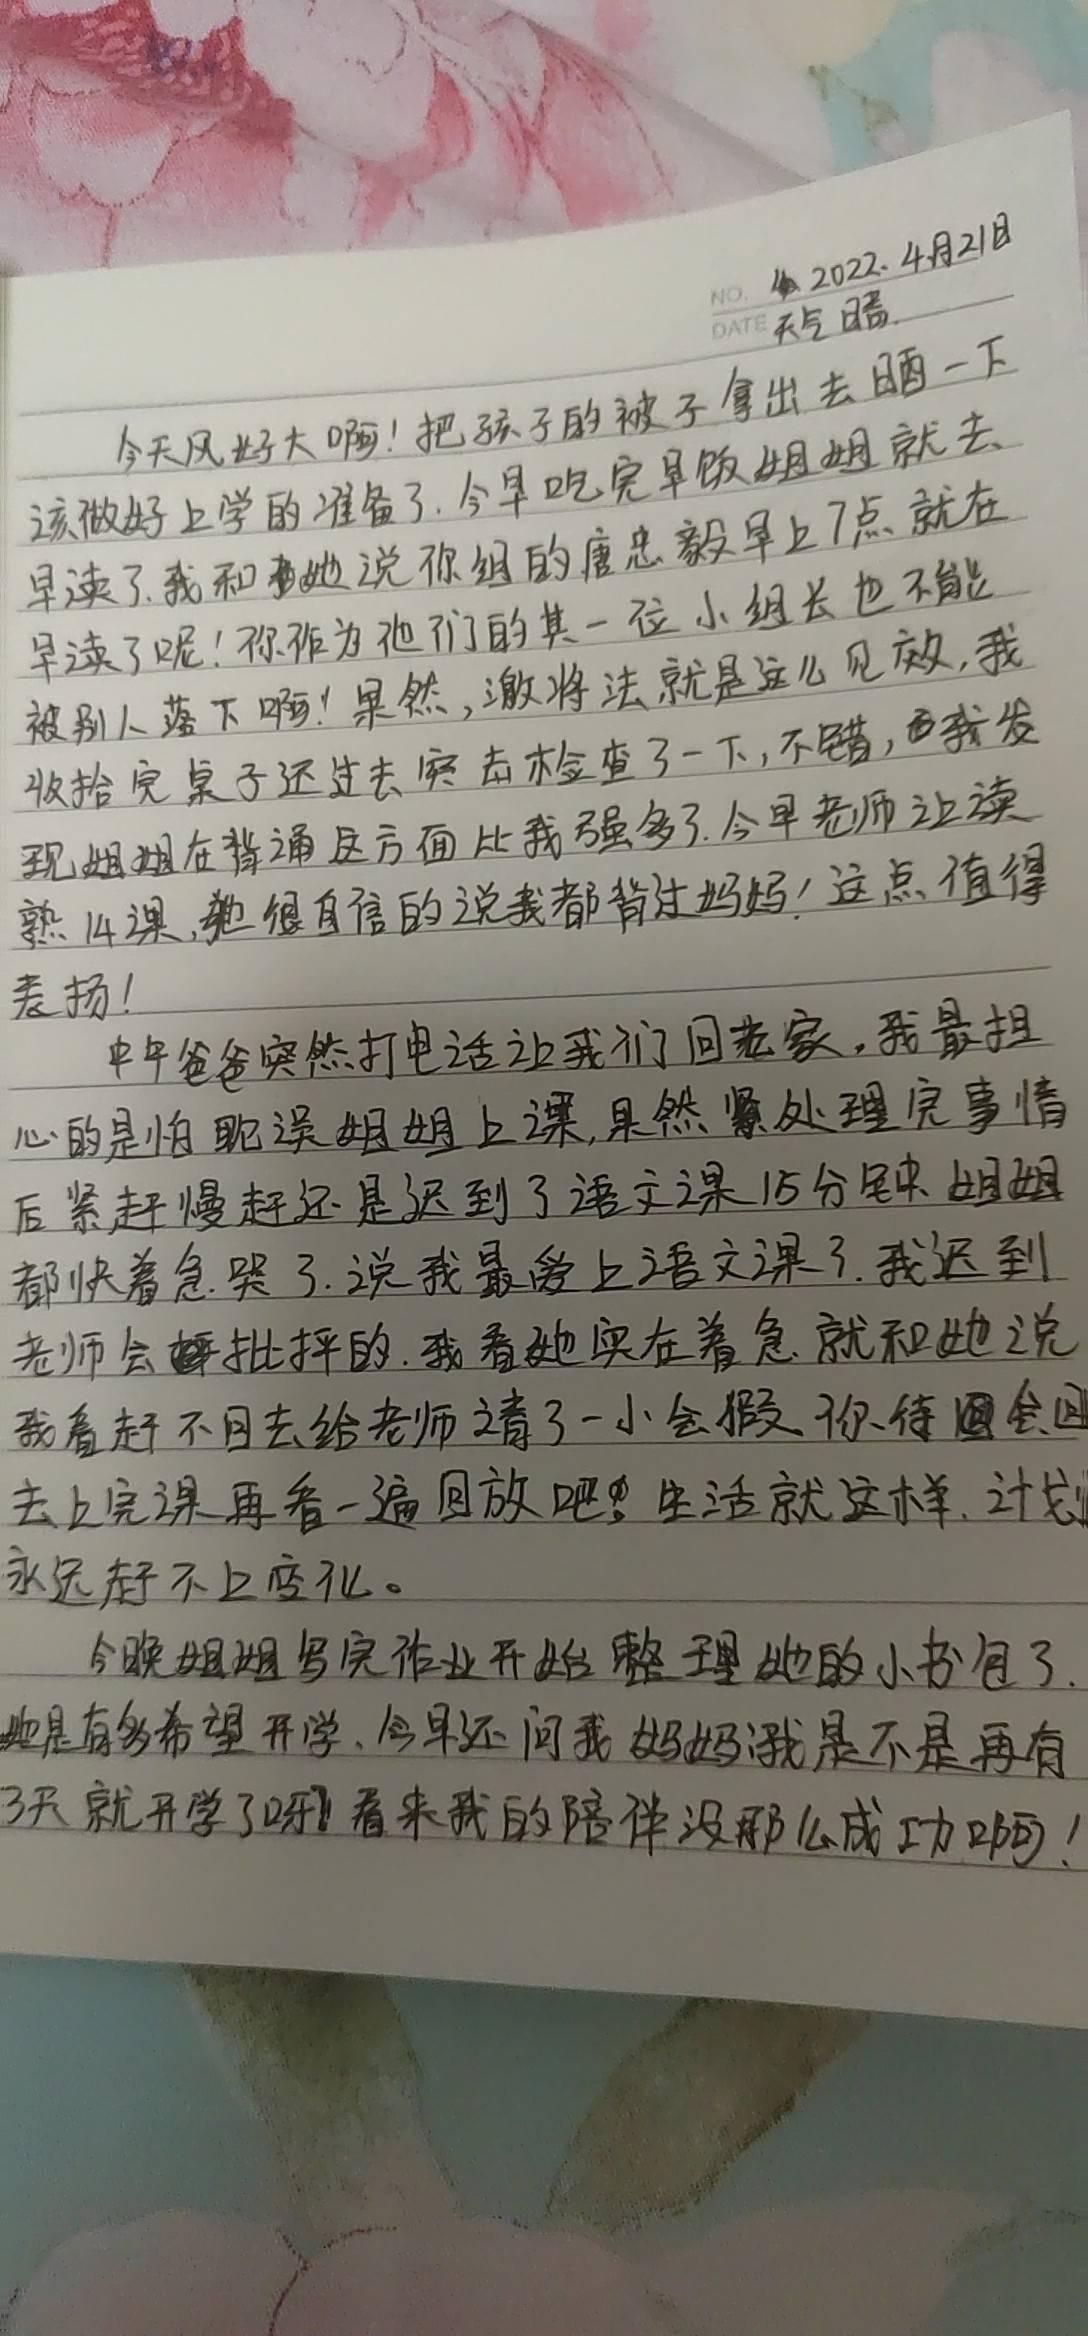 NO. 2022.4月21日
DATE 天气 晴.
今天风好大啊！把孩子的被子拿出去晒一下
该做好上学的准备了.今早吃完早饭姐姐就去
早读了.我和她说你组的唐忠毅早上7点就在
早读了呢！你作为他们的其一位小组长也不能
被别人落下啊！果然,激将法就是这么见效,我
收拾完桌子还过去突击检查了一下,不错,我发
现姐姐在背诵这方面比我强多了.今早老师让读
熟14课,她很自信的说我都背过妈妈！这点值得
表扬！
中午爸爸突然打电话让我们回老家,我最担
心的是怕耽误姐姐上课,果然紧处理完事情
后紧赶慢赶还是迟到了语文课15分钟 姐姐
都快着急哭了.说我最爱上语文课了.我迟到
老师会批抨的.我看她实在着急 就和她说
我看赶不回去给老师请了一小会假 你待会回
去上完课再看一遍回放吧！生活就这样.计划
永远赶不上变化。
今晚姐姐写完作业开始整理她的小书包了.
她是有多希望开学、今早还问我妈妈我是不是再有
3天就开学了呀！看来我的陪伴没那么成功啊！